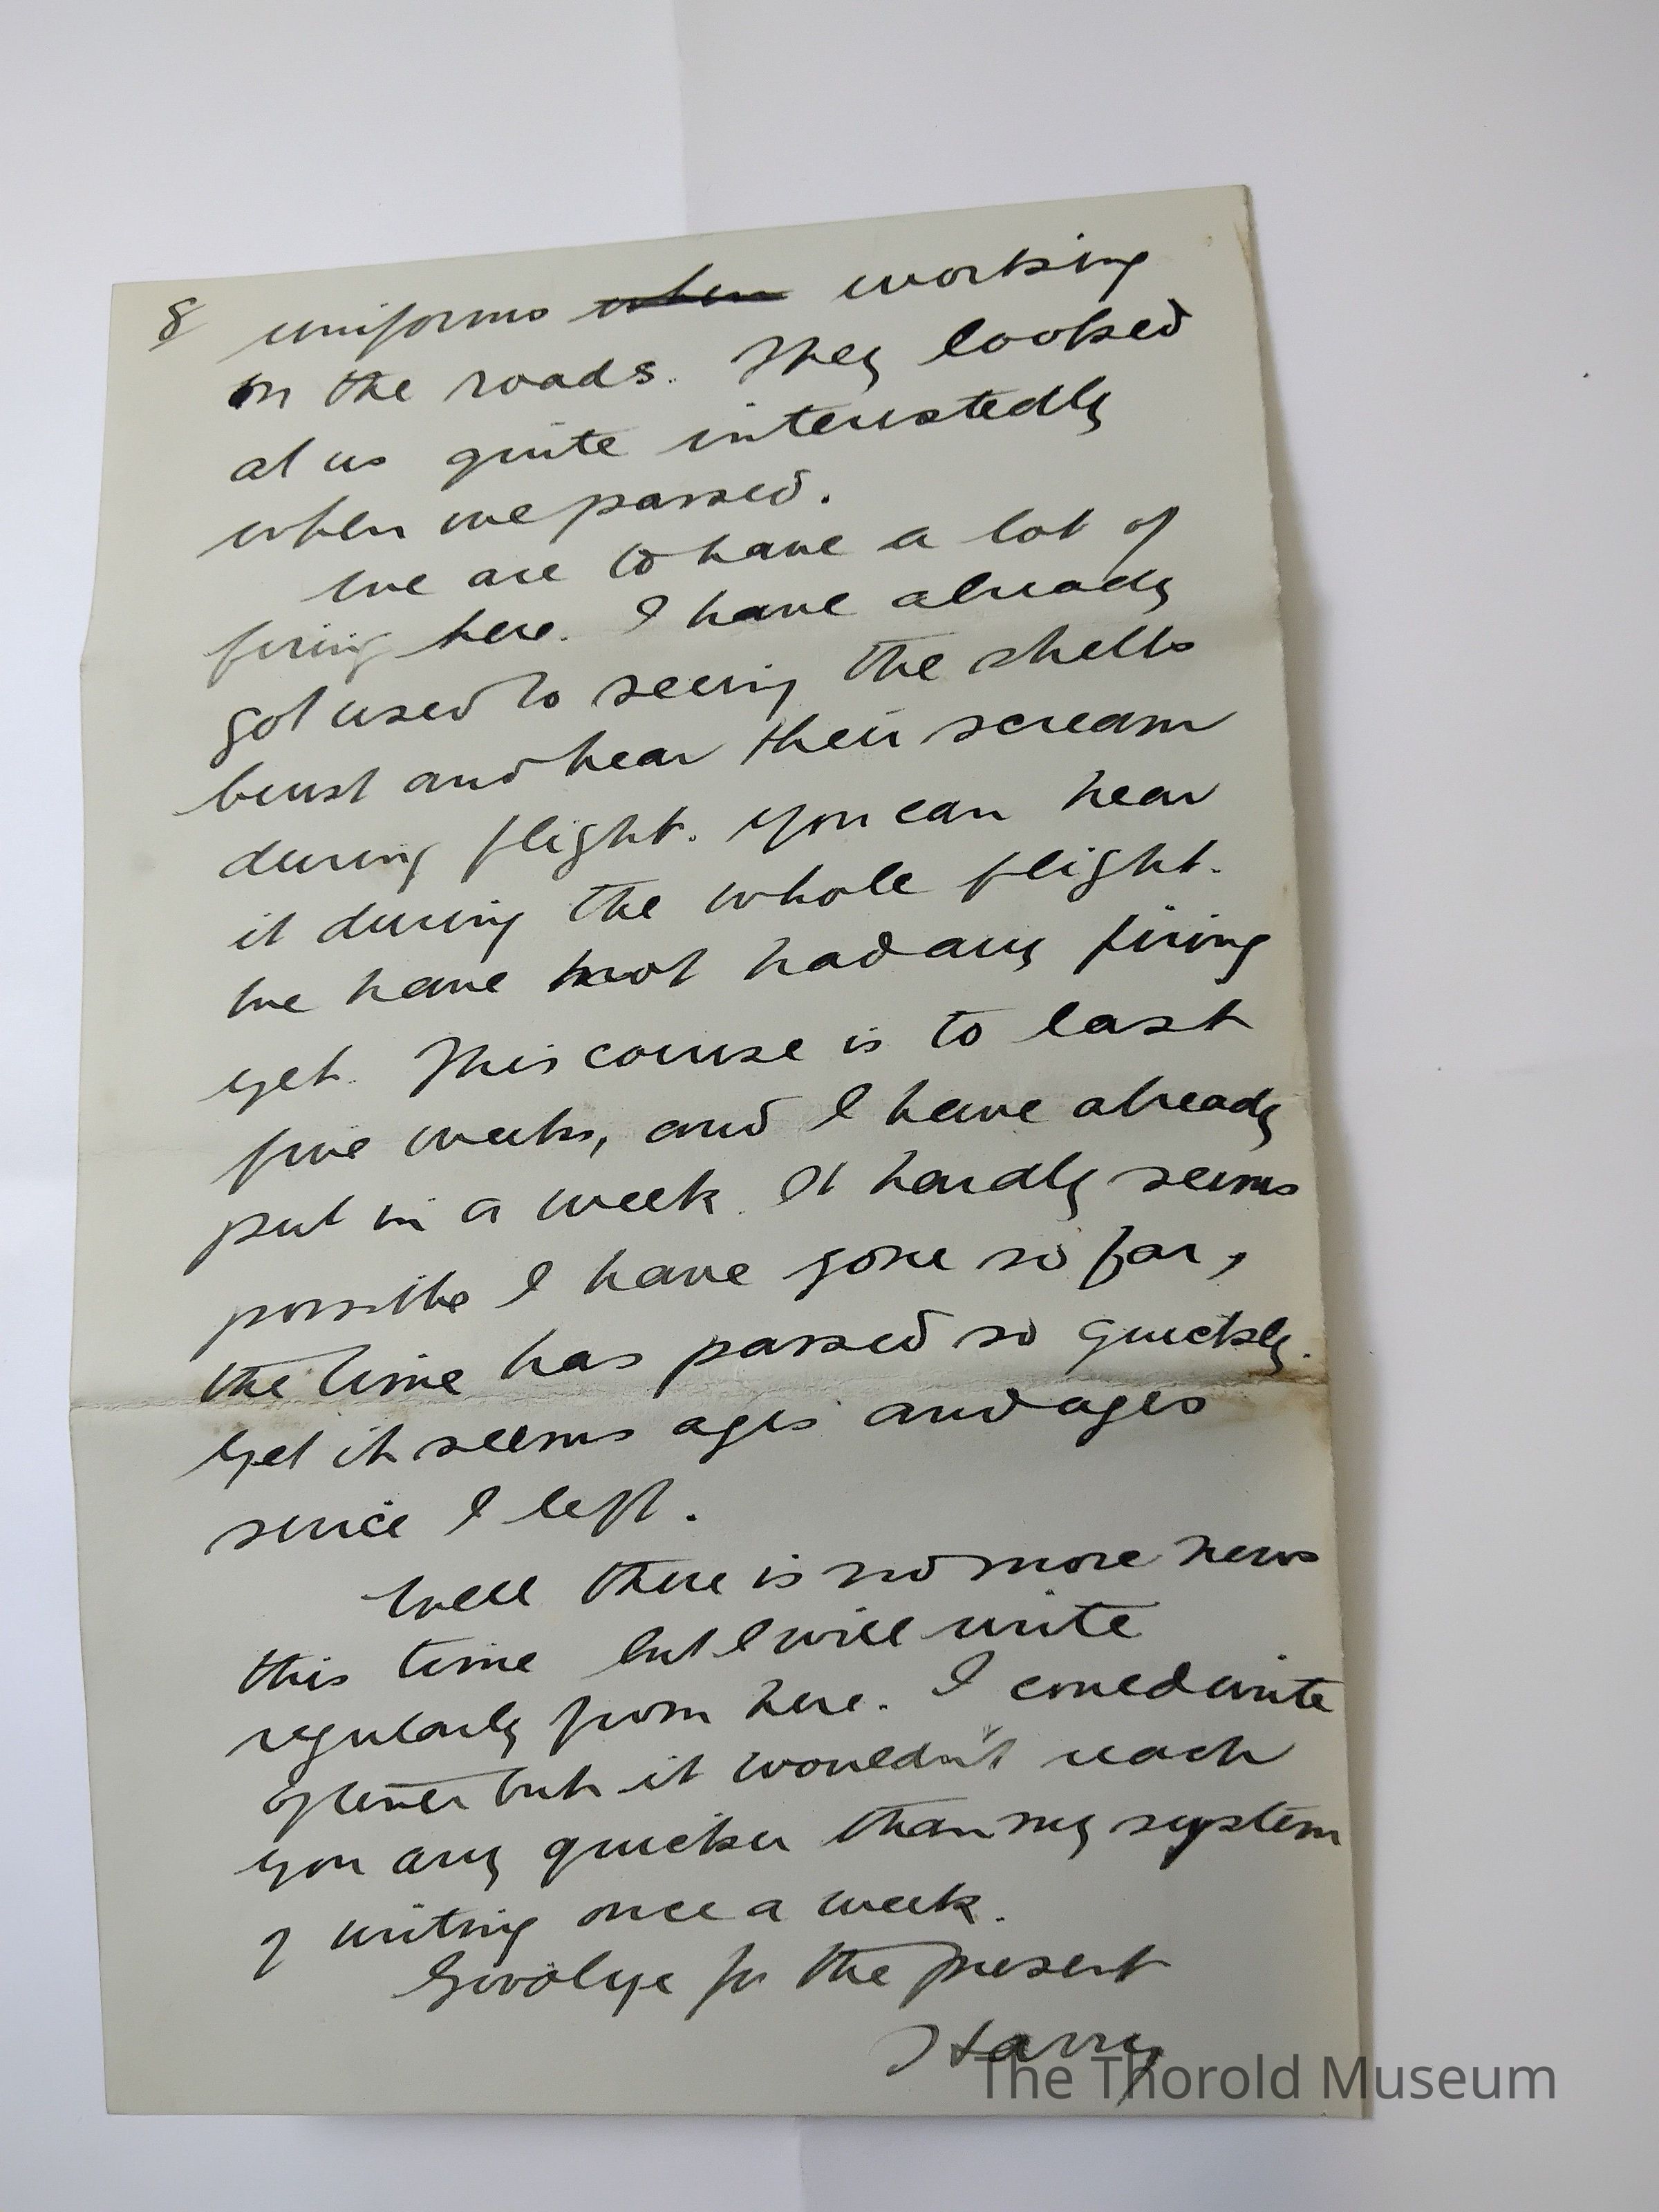 8 uniforms when working
on the roads. They looked
at us quite interestedly
when we passed.
We are to have a lot of
firing here. I have already
got used to seeing the shells
burst and hear their scream
during flight. You can hear
it during the whole flight.
We have not had any firing
yet. This course is to last
five weeks, and I have already
put in a week. It hardly seems
possible I have gone so far,
the time has passed so quickly.
Yet it seems ages and ages
since I left.
Well there is no more news
this time but I will write
regularly from here. I could write
oftener but it wouldn't reach
you any quicker than my system
of writing once a week.
Goodbye for the present
Harry
The Thorold Museum